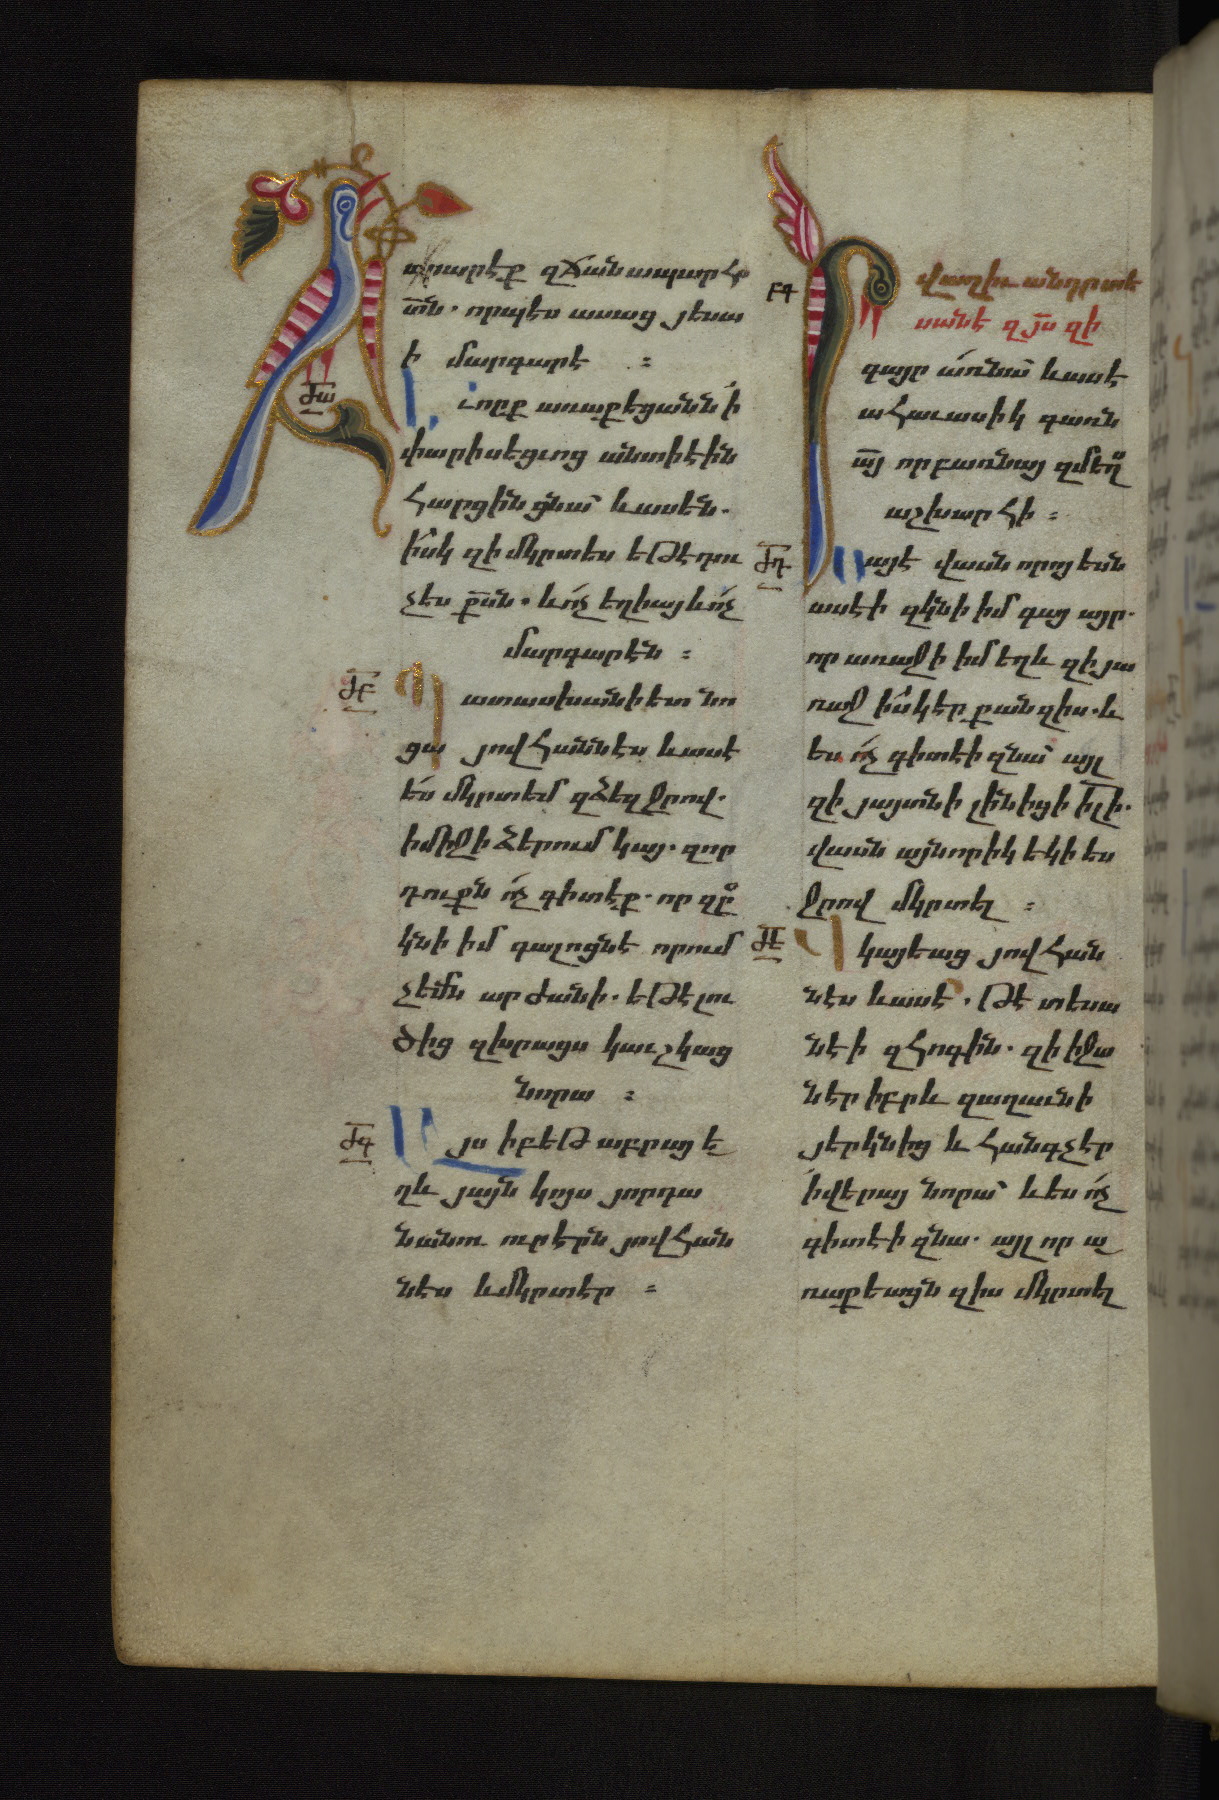 արարէք զճանապարհ
տն. որպէս ասաց յեսա
ի մարգարէ :
Եւ որք առաքեցանն ի
փարիսեցւոց անտի էին
հարցին ցնա՝ և ասեն.
իսկ զի մկրտես եթէ դու
չես քսն. և ոչ եղիայ և ոչ
մարգարէն :
Պատասխանի ետ նո
ցա յովհաննէս և ասէ
ես մկրտեմ զձեզ ջրով.
ի միջի ձերում կայ. զոր
դուքն ոչ գիտէք. որ զը
կնի իմ գալոցն է որում
չեմն արժանի. եթէ լու
ծից զխրացս կաւշկաց
նորա :
Այս ի բեթաբրայ ե
ղև յայն կոյս յորդա
նանու ուր էրն յովհան
նէս և մկրտէր :
ժա
ժբ
ժգ
բգ
Ի վաղիւ անդր տե
սանէ զյս զի
գայր առ նա՝ և ասէ
ահաւասիկ գառն
այ որ բառնայ զմեղս
աշխարհի :
Սա է վասն որոյ ես
ասէի զկնի իմ գայ այր.
որ առաջի իմ եղև զի յա
ռաջ իսկ էր քան զիս. և
ես ոչ գիտէի զնա՝ այլ
զի յայտնի լինիցի իլի.
վասն այնորիկ եկի ես
ջրով մկրտել :
Վկայեաց յովհան
նէս և ասէ. թէ տեսա
նէի զհոգին. զի իջա
նէր իբրև զաղաւնի
յերկնից և հանգչէր
ի վերայ նորա՝ և ես ոչ
գիտէի զնա. այլ որ ա
ռաքեացն զիս մկրտել
ժդ
ժե